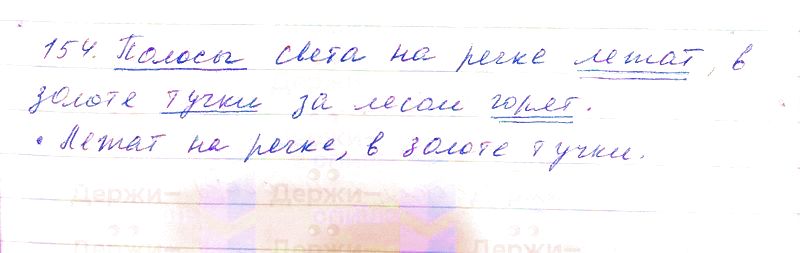 154. Полосы света на речке лежат, в
золоте тучки за лесом горят.
• Лежат на речке, в золоте тучки.
Держи– Держи–
спиши
Держи– Держи– Держи–